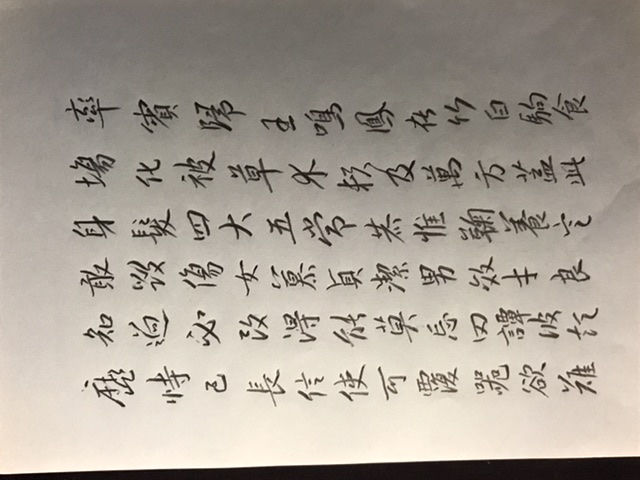 率賓歸王鳴鳳在竹白駒食
場化被草木賴及萬方蓋此
身髮四大五常恭惟鞠養豈
敢毀傷女慕貞潔男效才良
知過必改得能莫忘罔談彼短
靡恃己長信使可覆器欲難